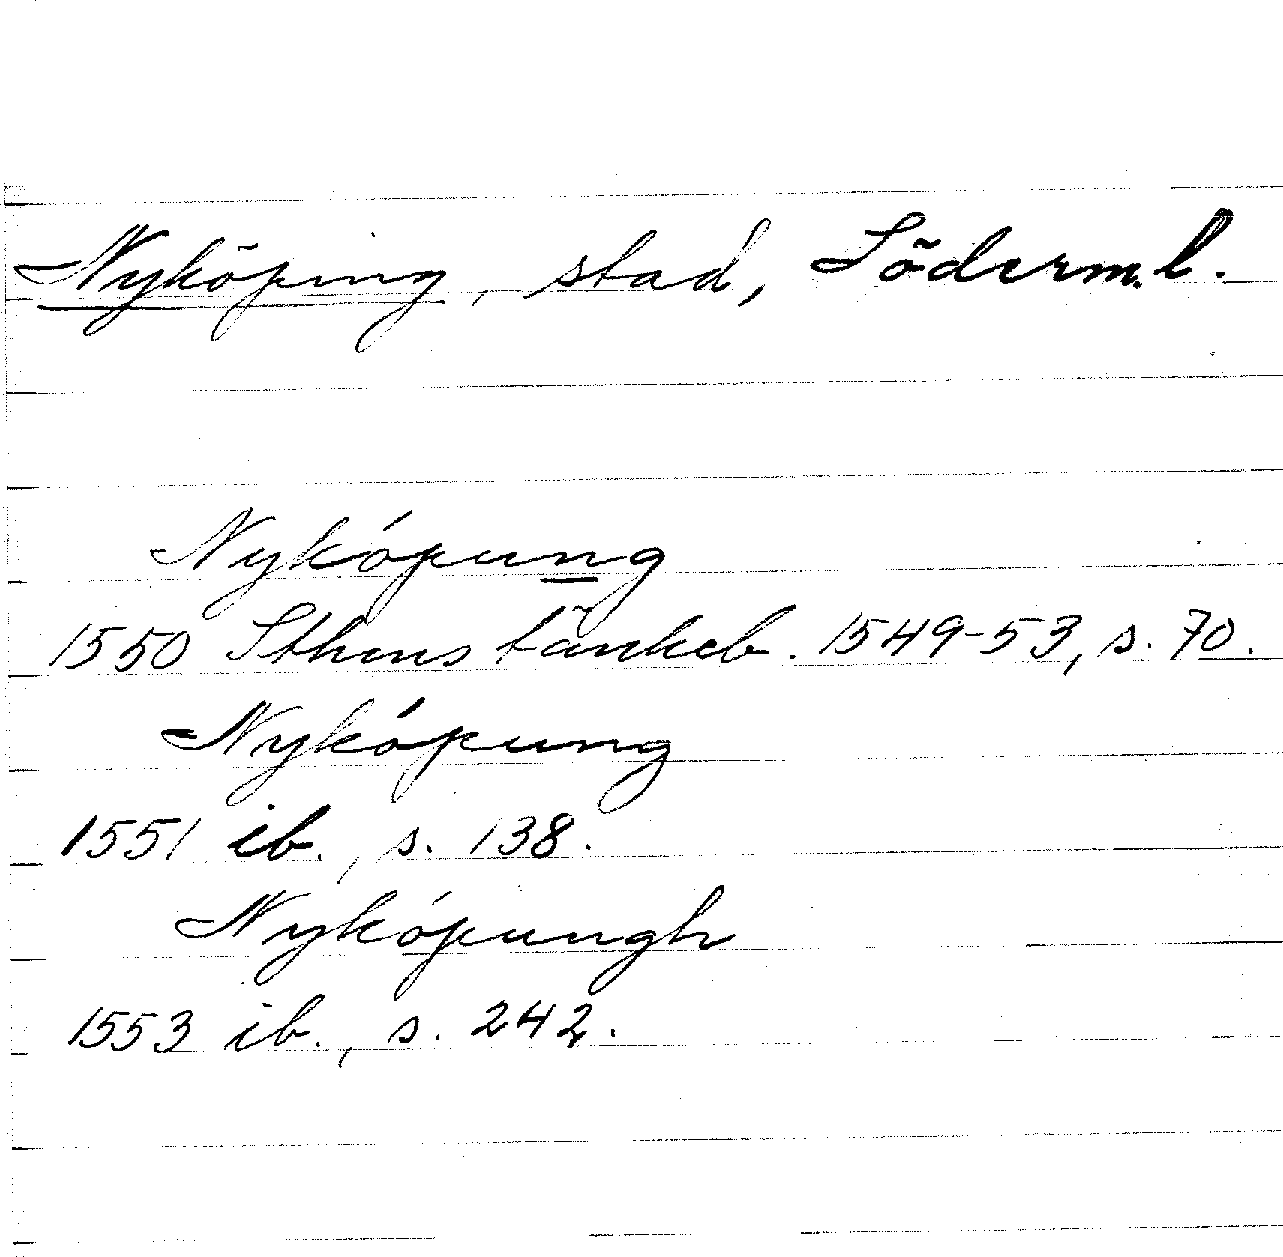 Nyköping, stad, Söderml.
Nykópung
1550 Sthms tänkeb. 1549-53, s. 70.
Nykópung
1551 ib., s. 138.
Nykópungh
1553 ib., s. 242.